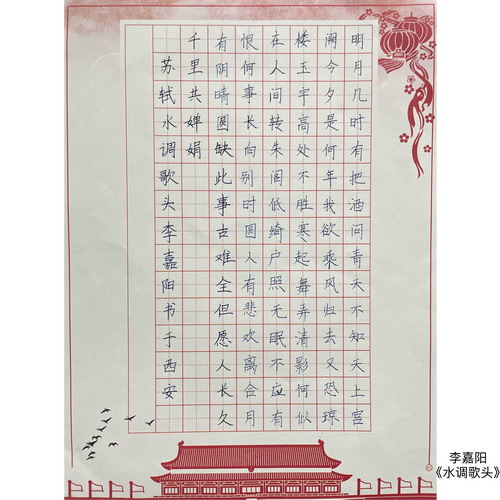 明月几时有把酒问青天不知天上宫
阙今夕是何年我欲乘风归去又恐琼
楼玉宇高处不胜寒起舞弄清影何似
在人间转朱阁低绮户照无眠不应有
恨何事长向别时圆人有悲欢离合月
有阴晴圆缺此事古难全但愿人长久
千里共婵娟
苏轼水调歌头李嘉阳书于西安
李嘉阳
《水调歌头》